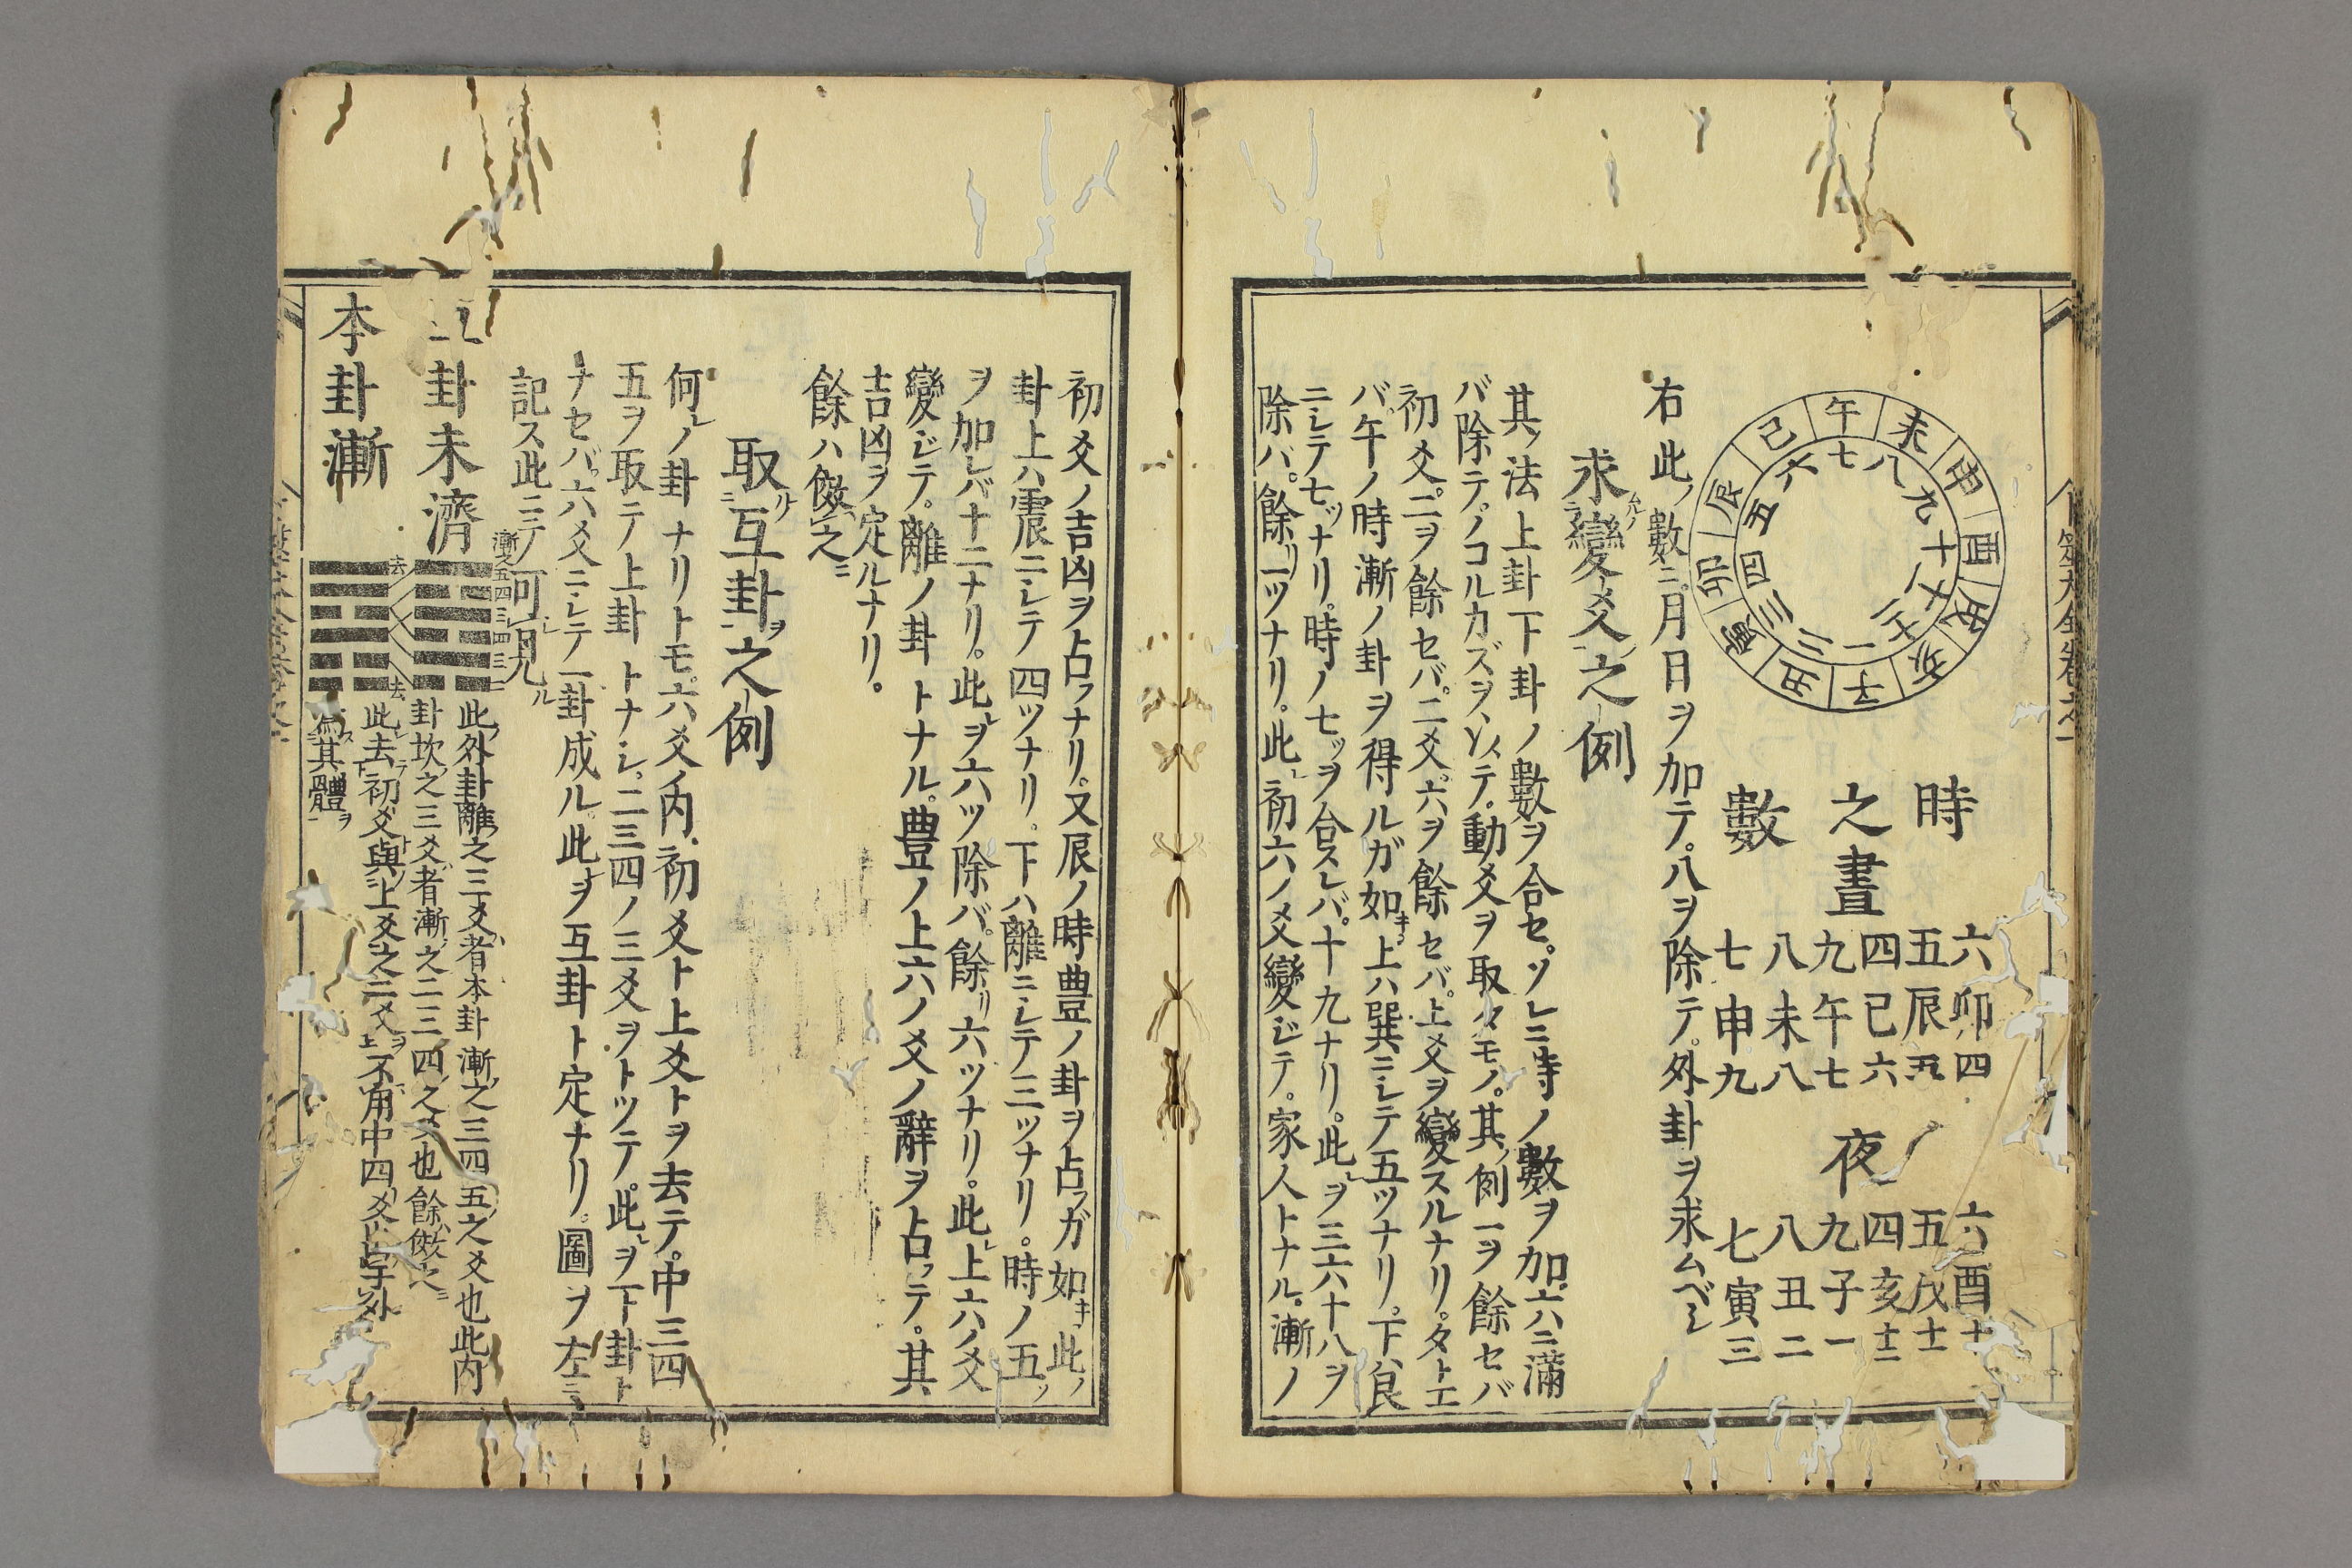 午 未 申 酉 戌 亥 子 丑 寅 卯 辰 巳
七 八 九 十 十一 十二 一 二 三 四 五 六
時之數
晝
六卯四
五辰五
四巳六
九午七
八未八
七申九
夜
六酉十
五戌十一
四亥十二
九子一
八丑二
七寅三
右此ノ數ニ月日ヲ加テ。八ヲ除テ。外卦ヲ求ムベシ
求ムルノ變爻ヲ之例
其ノ法上卦下卦ノ數ヲ合セ。ソレニ時ノ數ヲ加。六ニ滿
バ除テ。ノコルカズヲ以テ。動爻ヲ取タモノ。其ノ例一ヲ餘セバ
初爻。二ヲ餘セバ。二爻。六ヲ餘セバ。上爻ヲ變スルナリ。タトエ
バ。午ノ時漸ノ卦ヲ得ルガ如キハ。上ハ巽ニシテ五ツナリ。下ハ艮
ニシテ七ツナリ。時ノ七ツヲ合スレバ。十九ナリ。此レヲ三六十八ヲ
除バ。餘リ一ツナリ。此レ初六ノ爻變ジテ。家人トナル。漸ノ
初爻ノ吉凶ヲ占フナリ。又辰ノ時豊ノ卦ヲ占フガ如キハ此ノ
卦上ハ震ニシテ四ツナリ。下ハ離ニシテ三ツナリ。時ノ五ノ
ヲ加レバ十二ナリ。此レヲ六ツ除バ。餘リ六ツナリ。此レ上六ノ爻
變ジテ。離ノ卦トナル。豊ノ上六ノ爻ノ辭ヲ占フテ。其
吉凶ヲ定ルナリ。
餘ハ倣之ニ
取ルノ互卦ヲ之例
何レノ卦ナリトモ。六爻ノ内。初爻ト上爻トヲ去テ。中三四
五ヲ取テ上卦トナシ。二三四ノ三爻ヲトツテ。此レヲ下卦ト
ナセバ。六爻ニシテ一卦成ル。此レヲ互卦ト定ナリ。圖ヲ左ニ
記ス此ニテ可見ル
互卦未濟
漸ノ五四三四三二
此ノ外卦離ノ之三爻者ハ本卦漸ノ之三四五ノ之爻也此ノ内
卦坎ノ之三爻者ハ漸ノ之二三四ノ之爻也餘ハ倣之ニ
本卦漸
去
去
此レ去テ初爻與上爻之二爻ヲ不用中四爻
爲ス其體ヲ